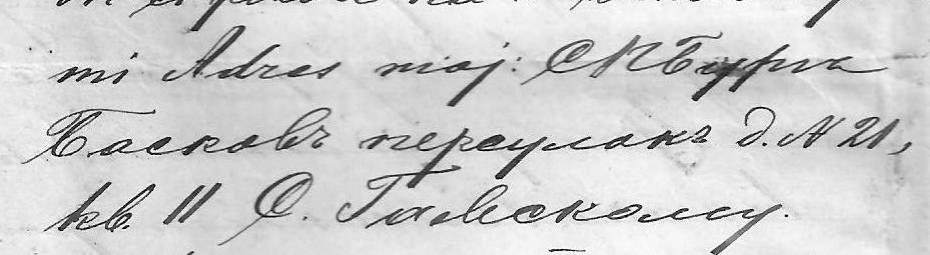 mi Adres moj: СПБург
Басковъ переулокъ д. N 21,
кв. 11 О. Гавскому.